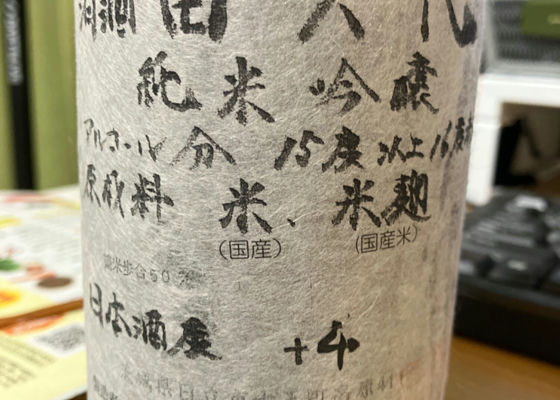 純米吟醸
アルコール分 15度以上16度
原材料 米、米麹
(国産) (国産米)
精米歩合60%
日本酒度 +4